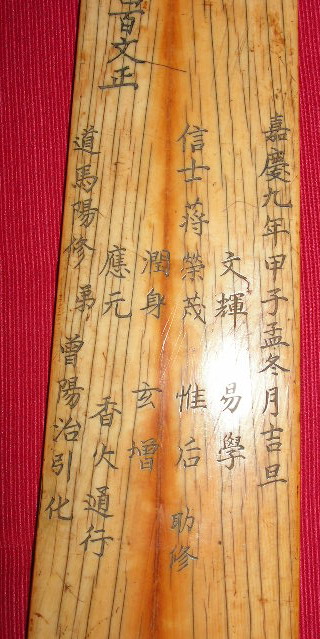 嘉慶九年甲子孟冬月吉旦
文輝 易學
信士蔣榮茂 惟后 助修
潤身 玄增
百文正
應元 香火通行
道馬陽修弟曾陽治引化